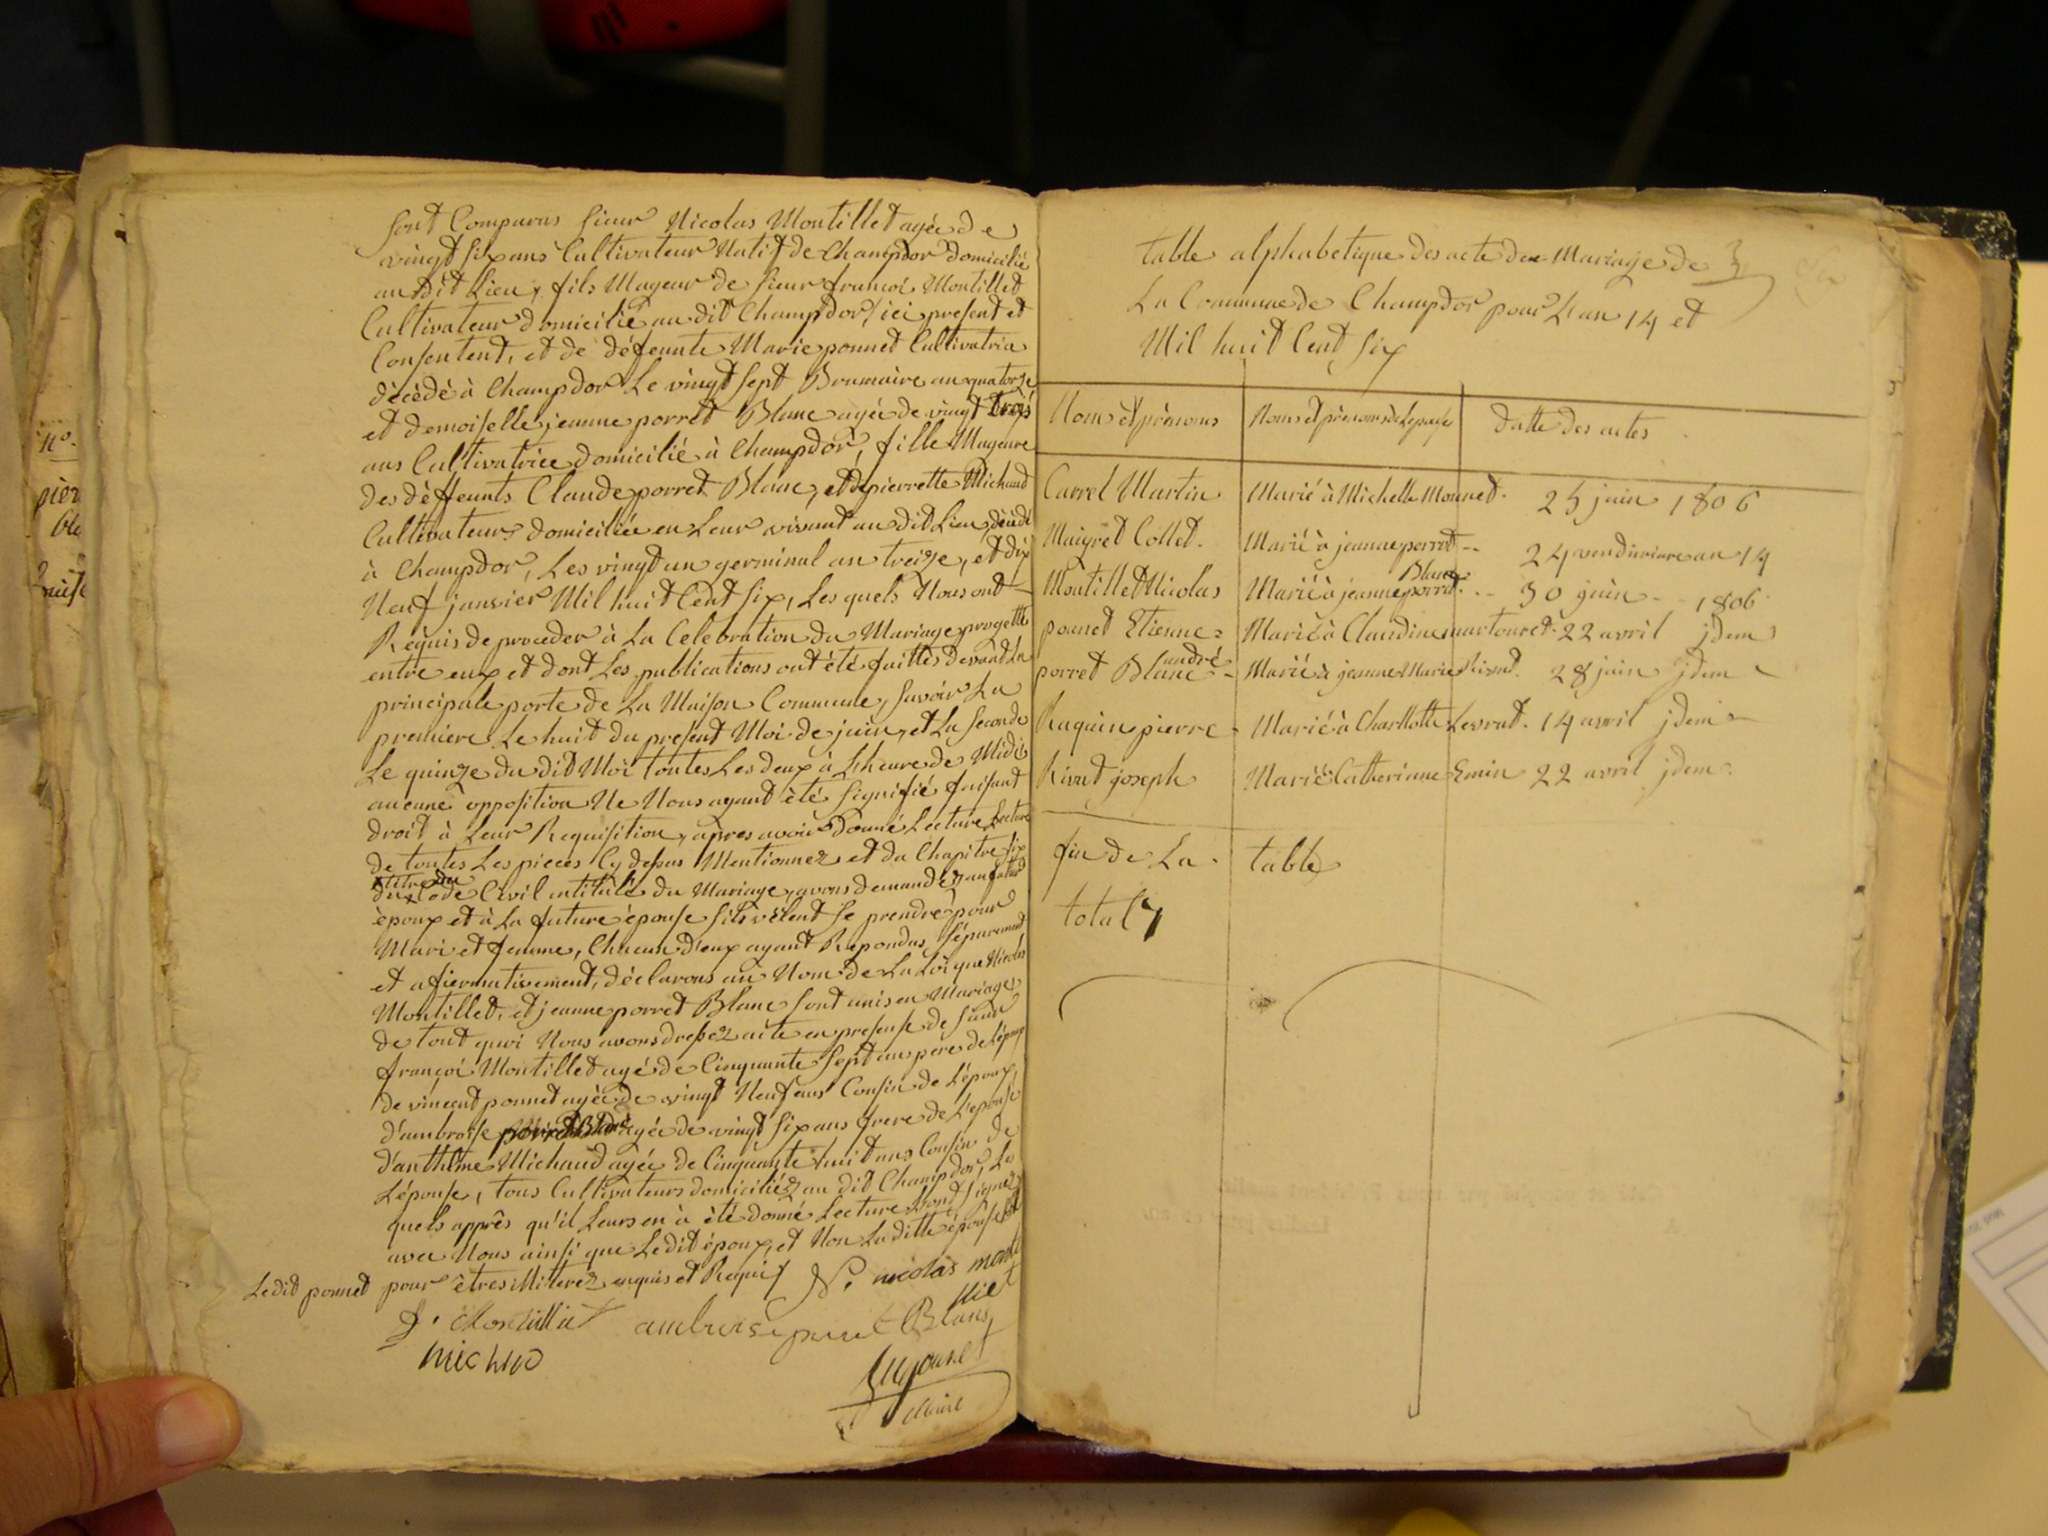 sont Comparus sieur Nicolas Montillet agée de
vingt six ans Cultivateur Natif de Champdor domicilié
au dit Lieu, fils Mageur de sieur françoi Montillet
Cultivateur domicilié au dit Champdor, ici present et
Consentent, et de défeunte Marie ponnet Cultivatria
décédé à Champdor Le vingt sept Brumaire an quatorze
et demoiselle jeanne porret Blanc agée de vingt trois
ans Cultivatrice domicilié à Champdor, fille Mageure
des déffeunts Claude porret Blanc, et de pierrette Michaud
Cultivateurs domiciliée en Leur vivant au dit Lieu, décédé
à Champdor, Les vingt un germinal an treize, et dix
Neuf janvier Mil huit Cent six, Les quels Nous ont
Requis de proceder à La Celebration du Mariage progetté
entre eux et dont Les publications ont été faittes devant La
principale porte de La Maison Commune, Savoir La
premiere Le huit du present Moi de juin, et La seconde
Le quinze du dit Moi toutes Les deux à L'heure de Midi
aucune opposition Ne Nous ayant été signifié faisant
droit à Leur Requisition, apres avoir Donné Lecture Lecture
de toutes Les pieces Cy dessus Mentionnez et du Chapitre six
titre du
du Code Civil intitulé du Mariage, avons demandéz au futur
époux et à La future épouse s'ils vëlent se prendre pour
Mari et femme, Chacun d'eux ayant Repondus séparement
et afiermativement, déclarons au Nom de La Loi que Nicolas
Montillet, et jeanne porret Blanc sont unis en Mariage
de tout quoi Nous avons dressez acte en presense de sieur
françoi Montillet agé de Cinquante sept ans pere de L'époux
de vincent ponnet agée de vingt Neuf ans Cousin de L'époux,
d'ambroise porret Blanc agée de vingt six ans frere de L'épouse
d'anthlme Michaud agée de Cinquante huit ans Cousin de
L'épouse, tous Cultivateurs domiciliéz au dit Champdor, Les
quels apprês qu'il Leurs en à été donné Lecture L'ont signez
avec Nous ainsi que Le dit époux, et Non La ditte épouse
Le dit ponnet pour êtres illiterez enquis et Requis N. nicolas monti
llet
f. Montillet ambroise porret Blanc
michuo
Maire
table alphabetique des acte de Mariage de
La Commune de Champdor pour L'an 14 et
Mil huit Cent six
3
Noms et prénoms Noms et prénoms de L'épouse datte des actes
Carrel Martin Marié à Michelle Monnet. 25 juin 1806
Maigret Collet. Marié à jeanne porret -- 24 vendimiaire an 14
Blanc
Montillet Nicolas Marié à jeanne porret. -- 30 juin -- 1806
ponnet Etienne Marié à Claudine martouret. 22 avril jdem
andré
porret Blanc - Marié à jeanne Marie Rivat. 28 juin jdem
Raquin pierre Marié à Charllotte Levrat. 14 avril jdem
Rivat joseph Marié à Catherinne Emin 22 avril jdem.
fin de La table
total 7